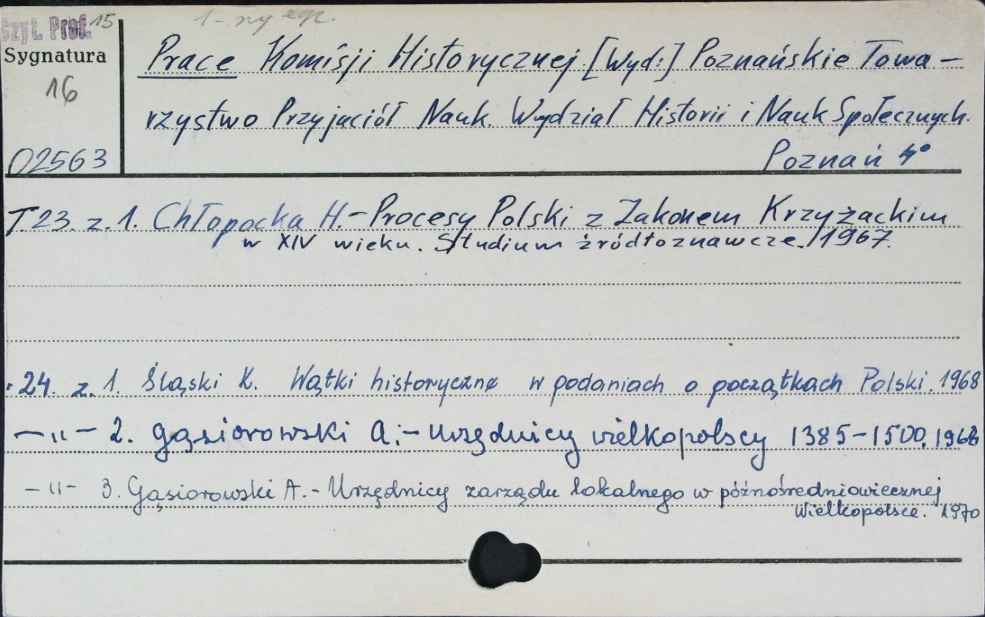 Czyt. Prof. 15
1-ny egz.
Sygnatura
16
02563
Prace Komisji Historycznej. [Wyd:] Poznańskie Towa-
rzystwo Przyjaciół Nauk. Wydział Historii i Nauk Społecznych.
Poznań 4°
T 23. z. 1. Chłopocka H. - Procesy Polski z Zakonem Krzyżackim
w XIV wieku. Studium źródłoznawcze. 1967.
24. z. 1. Śląski K. Wątki historyczne w podaniach o początkach Polski. 1968
-"- 2. Gąsiorowski A. - Urzędnicy wielkopolscy 1385-1500. 1968
-"- 3. Gąsiorowski A. - Urzędnicy zarządu lokalnego w późnośredniowiecznej
Wielkopolsce. 1970